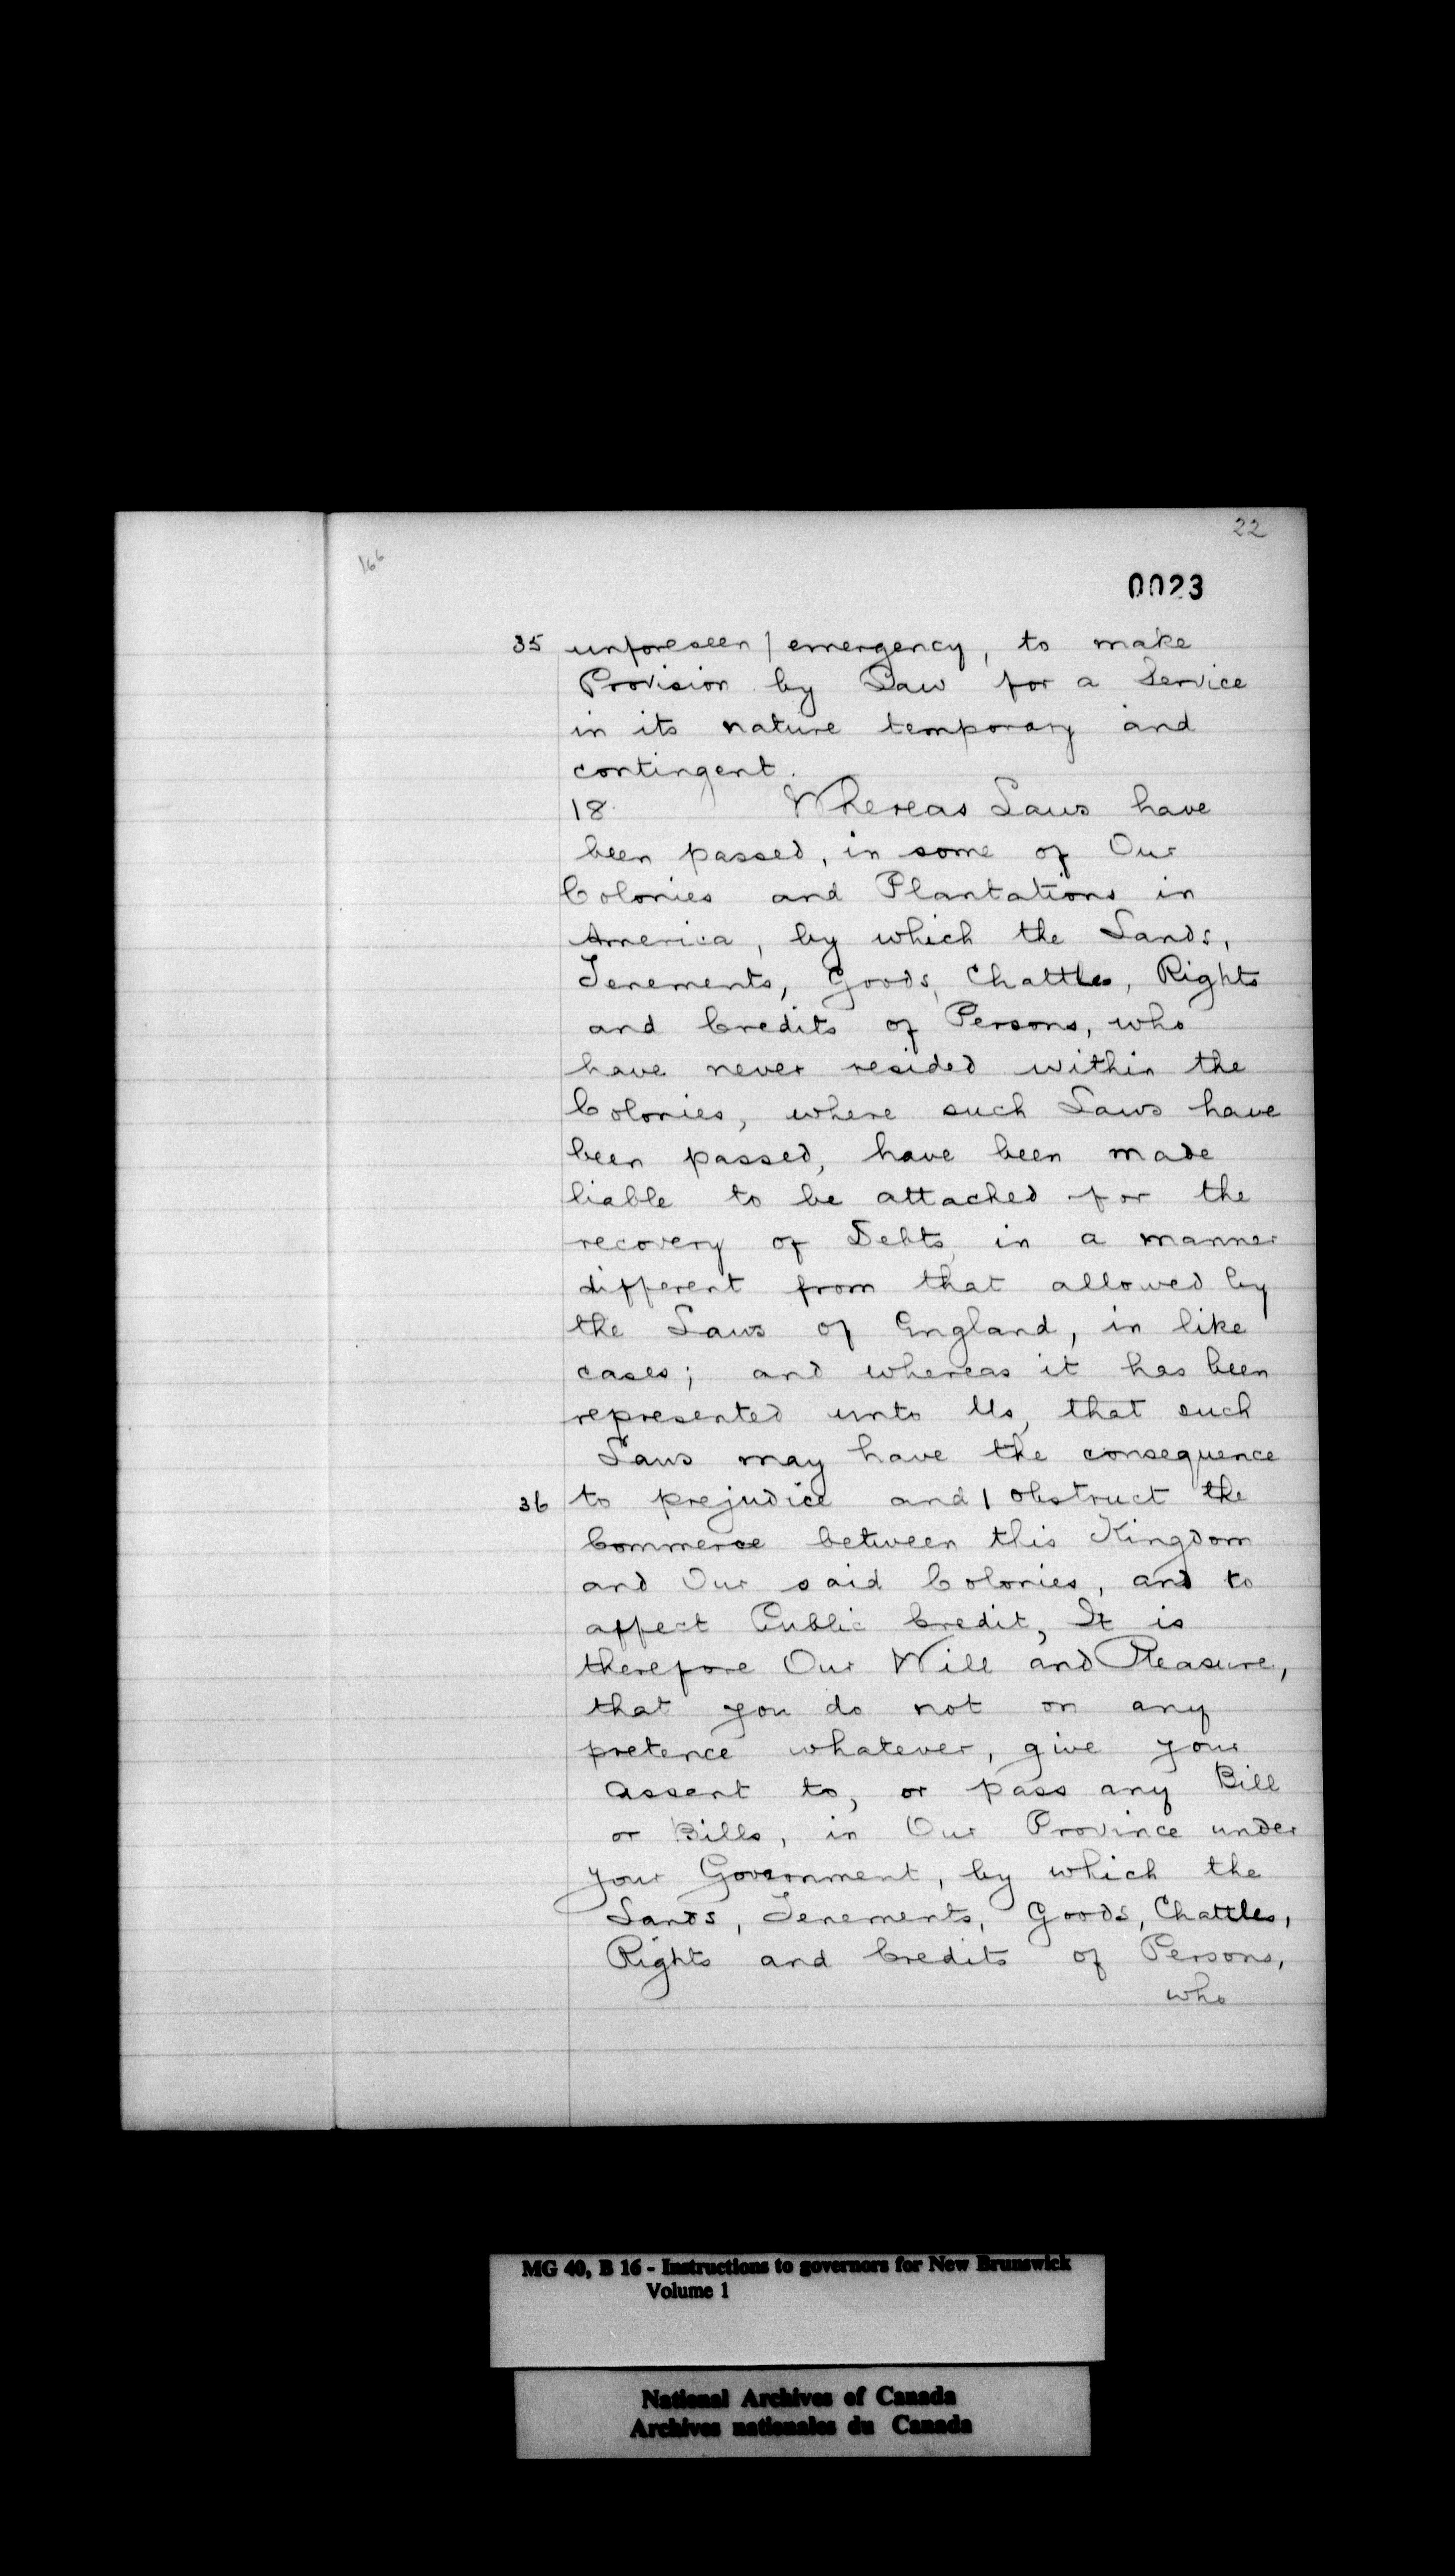 22
166
0023
35 unforeseen / emergency, to make
Provision by Law for a Service
in its nature temporary and
contingent.
18. Whereas Laws have
been passed, in some of Our
Colonies and Plantations in
America, by which the Lands,
Tenements, Goods, Chattles, Rights
and Credits of Persons, who
have never resided within the
Colonies, where such Laws have
been passed, have been made
liable to be attached for the
recovery of Debts, in a manner
different from that allowed by
the Laws of England, in like
cases; and whereas it has been
represented unto Us, that such
Laws may have the consequence
36 to prejudice and / obstruct the
Commerce between this Kingdom
and Our said Colonies, and to
affect Public Credit, It is
therefore Our Will and Pleasure,
that you do not on any
pretence whatever, give your
assent to, or pass any Bill
or Bills, in Our Province under
your Government, by which the
Lands, Tenements, Goods, Chattles,
Rights and Credits of Persons,
who
MG 40, B 16 - Instructions to governors for New Brunswick
Volume 1
National Archives of Canada
Archives nationales du Canada